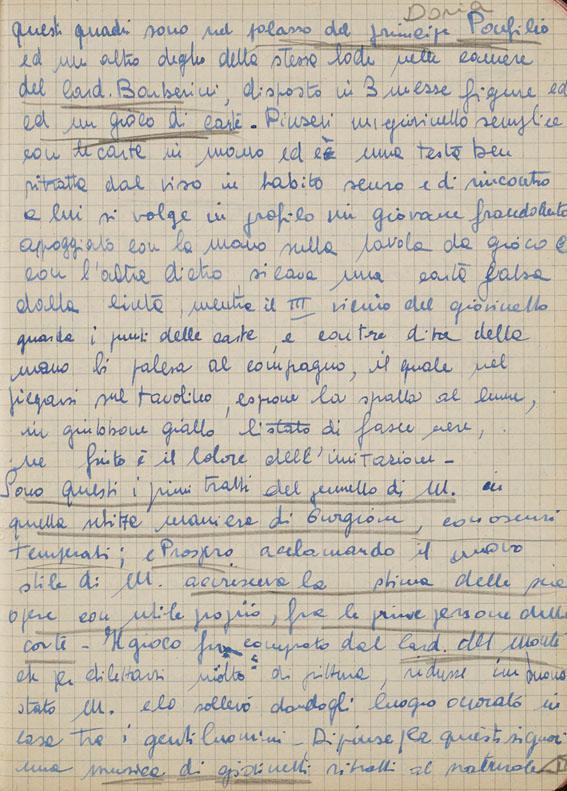 Doria
questi quadri sono nel palasso del principe Panfilio
ed un altro degno della stessa lode nelle camere
del Card. Barberini, disposto in 3 messe figure ed
ed un gioco di carte. Pinsevi un giovinello semplice
con le carte in mano ed è una testa ben
ritratta dal vivo in habito scuro e di rincontro
a lui si volge in profilo un giovane fraudolento
appoggiato con la mano sulla tavola da gioco e
con l'altra dietro, si cava una carta falsa
dalla cinta, mentre il III vicino del giovinello
guarda i punti delle carte, e con tre dita della
mano li palesa al compagno, il quale nel
piegarsi sul tavolino, espone la spalla al lume,
in giubbone giallo listato di fasce nere,
ne finto è il colore dell'imitazione -
Sono questi i primi tratti del pennello di M. in
quella schietta maniera di Giorgione, con oscuri
temperati; e Prospero acclamando il nuovo
stile di M. accresceva la stima delle sue
opere con utile proprio, fra le prime persone della
corte - Il gioco fu comprato dal Card. del Monte
che per dilettarsi molto di pittura, ridusse in buono
stato M. e lo sollevò dandogli luogo onorato in
casa tra i gentiluomini - Dipinse per questo signor
una musica di giovinetti ritratti al naturale